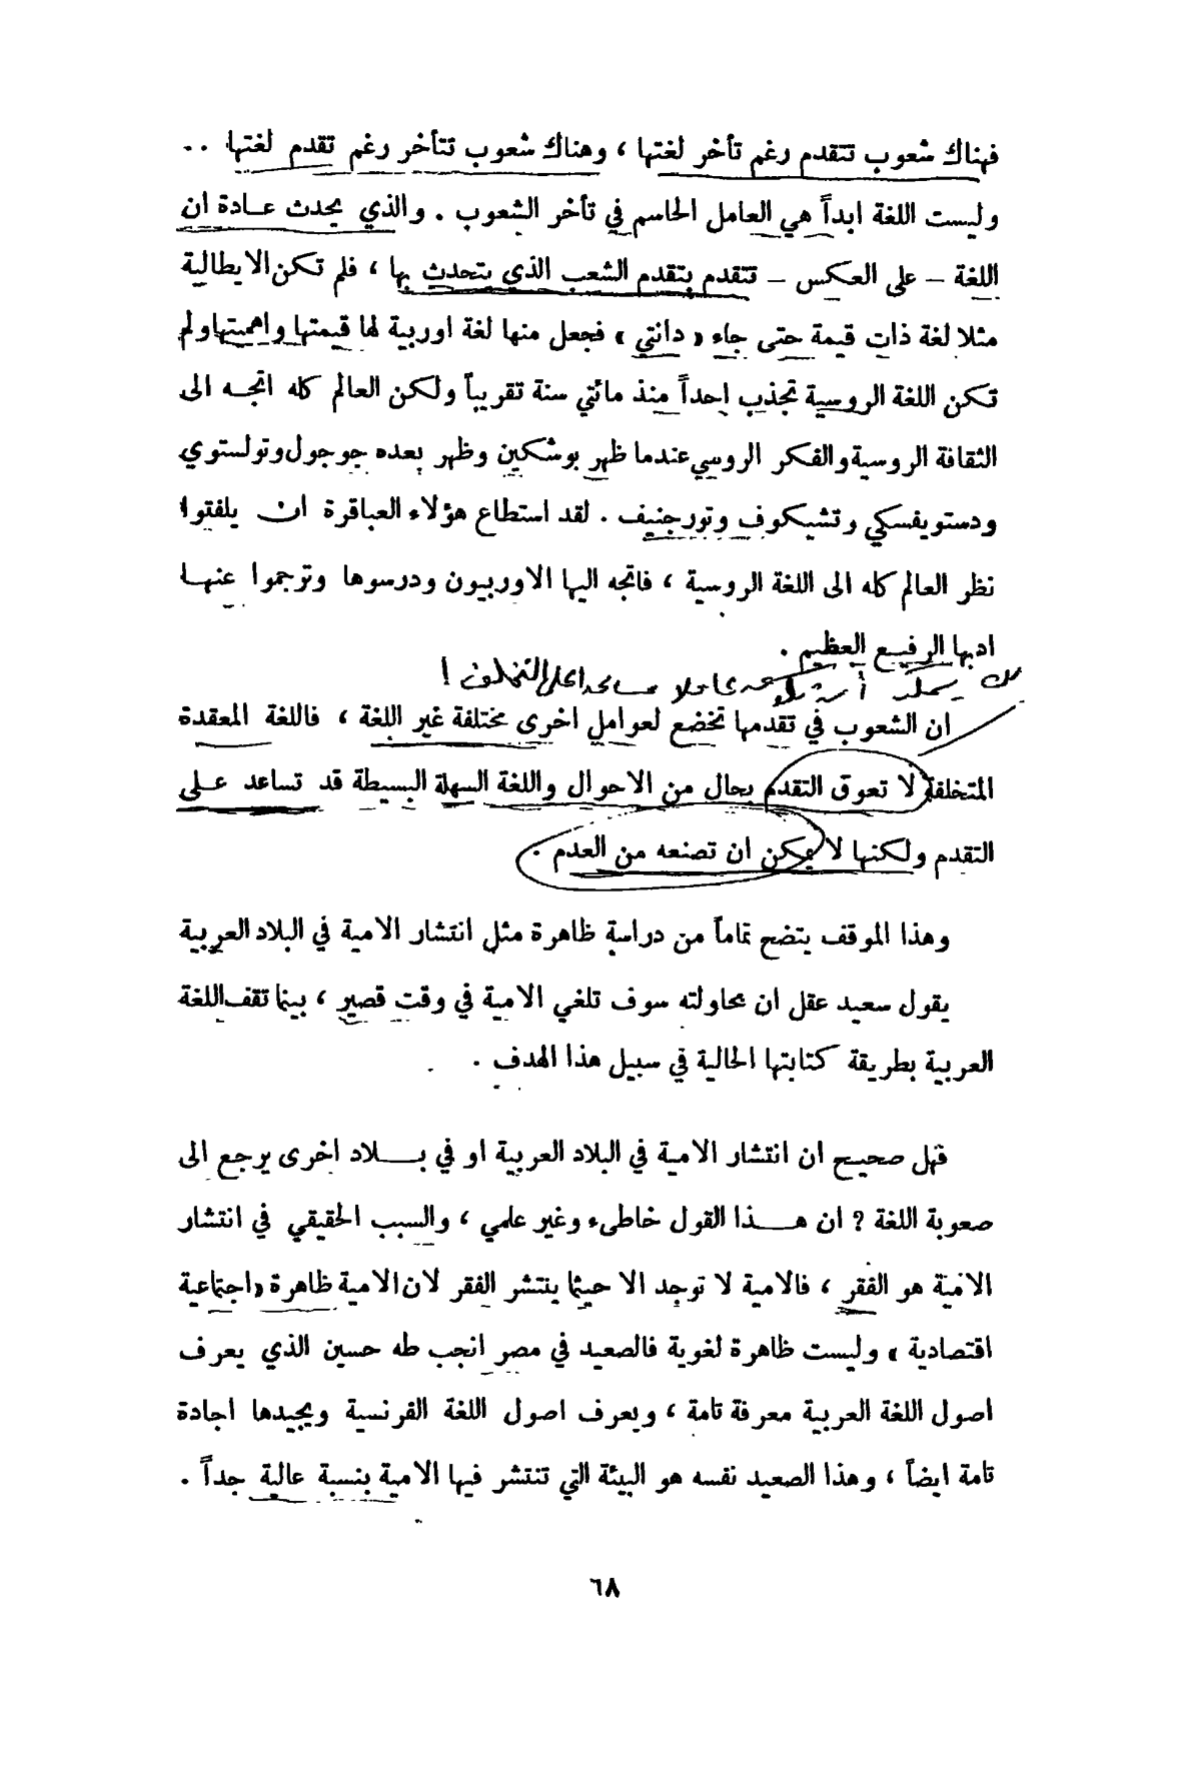 فهناك شعوب تتقدم رغم تأخر لغتها ، وهناك شعوب تتأخر رغم تقدم لغتها ..
وليست اللغة ابداً هي العامل الحاسم في تأخر الشعوب . والذي يحدث عادة ان
اللغة – على العكس – تتقدم بتقدم الشعب الذي يتحدث بها ، فلم تكن الايطالية
مثلا لغة ذات قيمة حتى جاء « دانتي » فجعل منها لغة اوربية لها قيمتها واهميتها ولم
تكن اللغة الروسية تجذب احداً منذ مائتي سنة تقريباً ولكن العالم كله اتجه الى
الثقافة الروسية والفكر الروسي عندما ظهر بوشكين وظهر بعده جوجول وتولستوي
ودستويفسكي وتشيكوف وتورجنيف . لقد استطاع هؤلاء العباقرة ان يلفتوا
نظر العالم كله الى اللغة الروسية ، فاتجه اليها الاوربيون ودرسوها وترجموا عنها
ادبها الرفيع العظيم .
أن عاملا مساعدا على التخلف !
ان الشعوب في تقدمها تخضع لعوامل اخرى مختلفة غير اللغة ، فاللغة المعقدة
المتخلفة لا تعوق التقدم بحال من الاحوال واللغة السهلة البسيطة قد تساعد على
التقدم ولكنها لا يمكن ان تصنعه من العدم .
وهذا الموقف يتضح تماماً من دراسة ظاهرة مثل انتشار الامية في البلاد العربية
يقول سعيد عقل ان محاولته سوف تلغي الامية في وقت قصير ، بينما تقف اللغة
العربية بطريقة كتابتها الحالية في سبيل هذا الهدف .
فهل صحيح ان انتشار الامية في البلاد العربية او في بلاد اخرى يرجع الى
صعوبة اللغة ? ان هذا القول خاطىء وغير علمي ، والسبب الحقيقي في انتشار
الامية هو الفقر ، فالامية لا توجد الا حيثما ينتشر الفقر لان الامية ظاهرة « اجتماعية
اقتصادية » وليست ظاهرة لغوية فالصعيد في مصر انجب طه حسين الذي يعرف
اصول اللغة العربية معرفة تامة ، ويعرف اصول اللغة الفرنسية ويجيدها اجادة
تامة ايضاً ، وهذا الصعيد نفسه هو البيئة التي تنتشر فيها الامية بنسبة عالية جداً .
٦٨